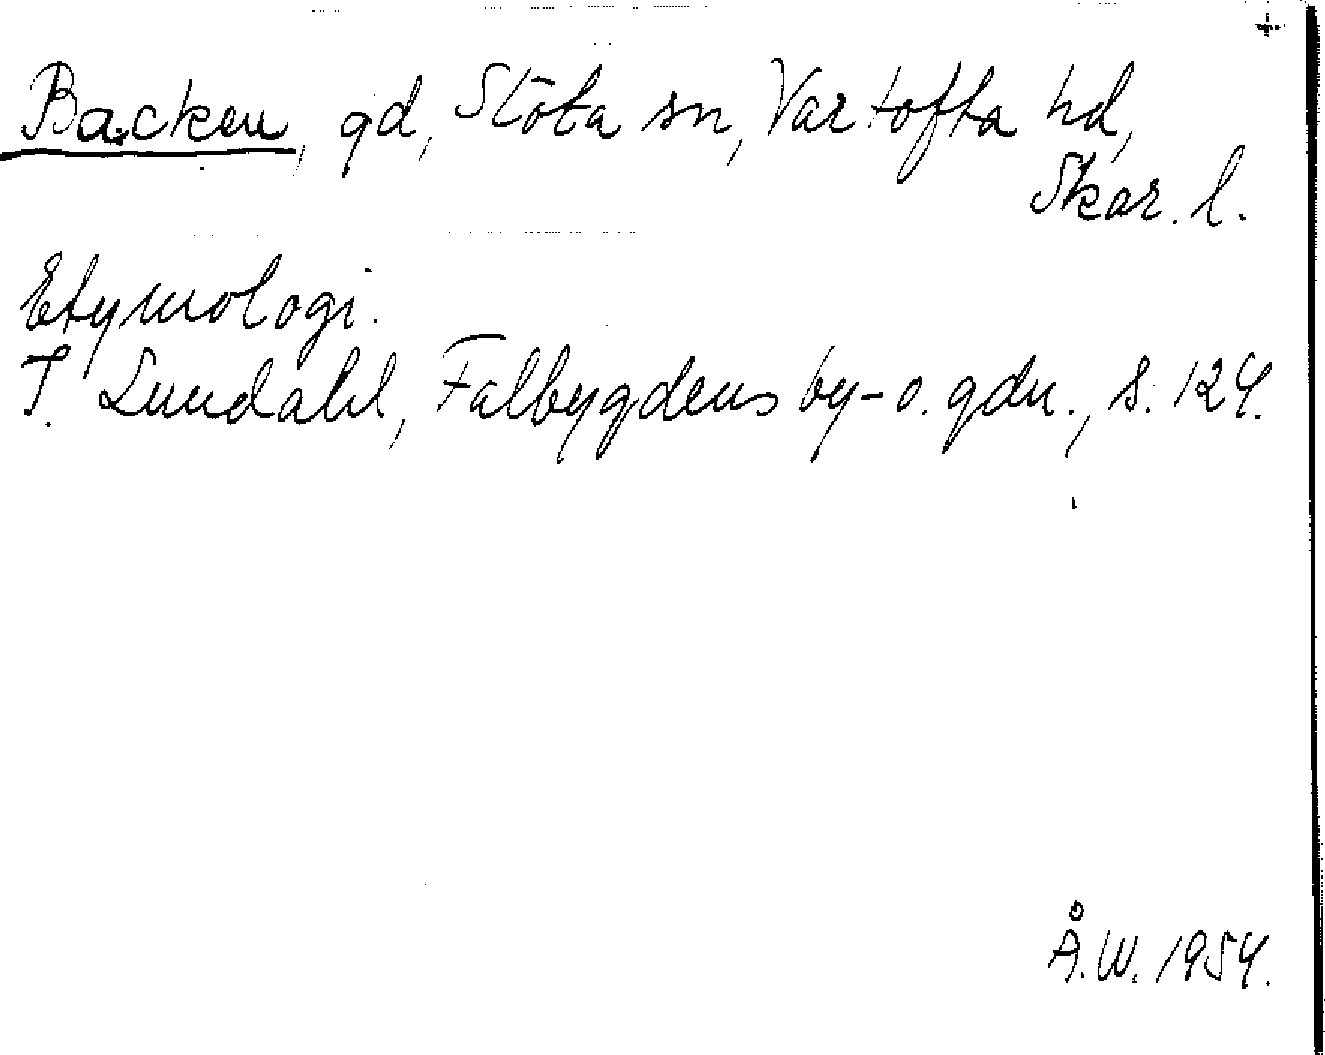 Backen, gd, Slöta sn, Vartofta hd,
Skar. l.
Etymologi.
I. Lundahl, Falbygdens by- o. gdn., s. 124.
Å.W. 1954.